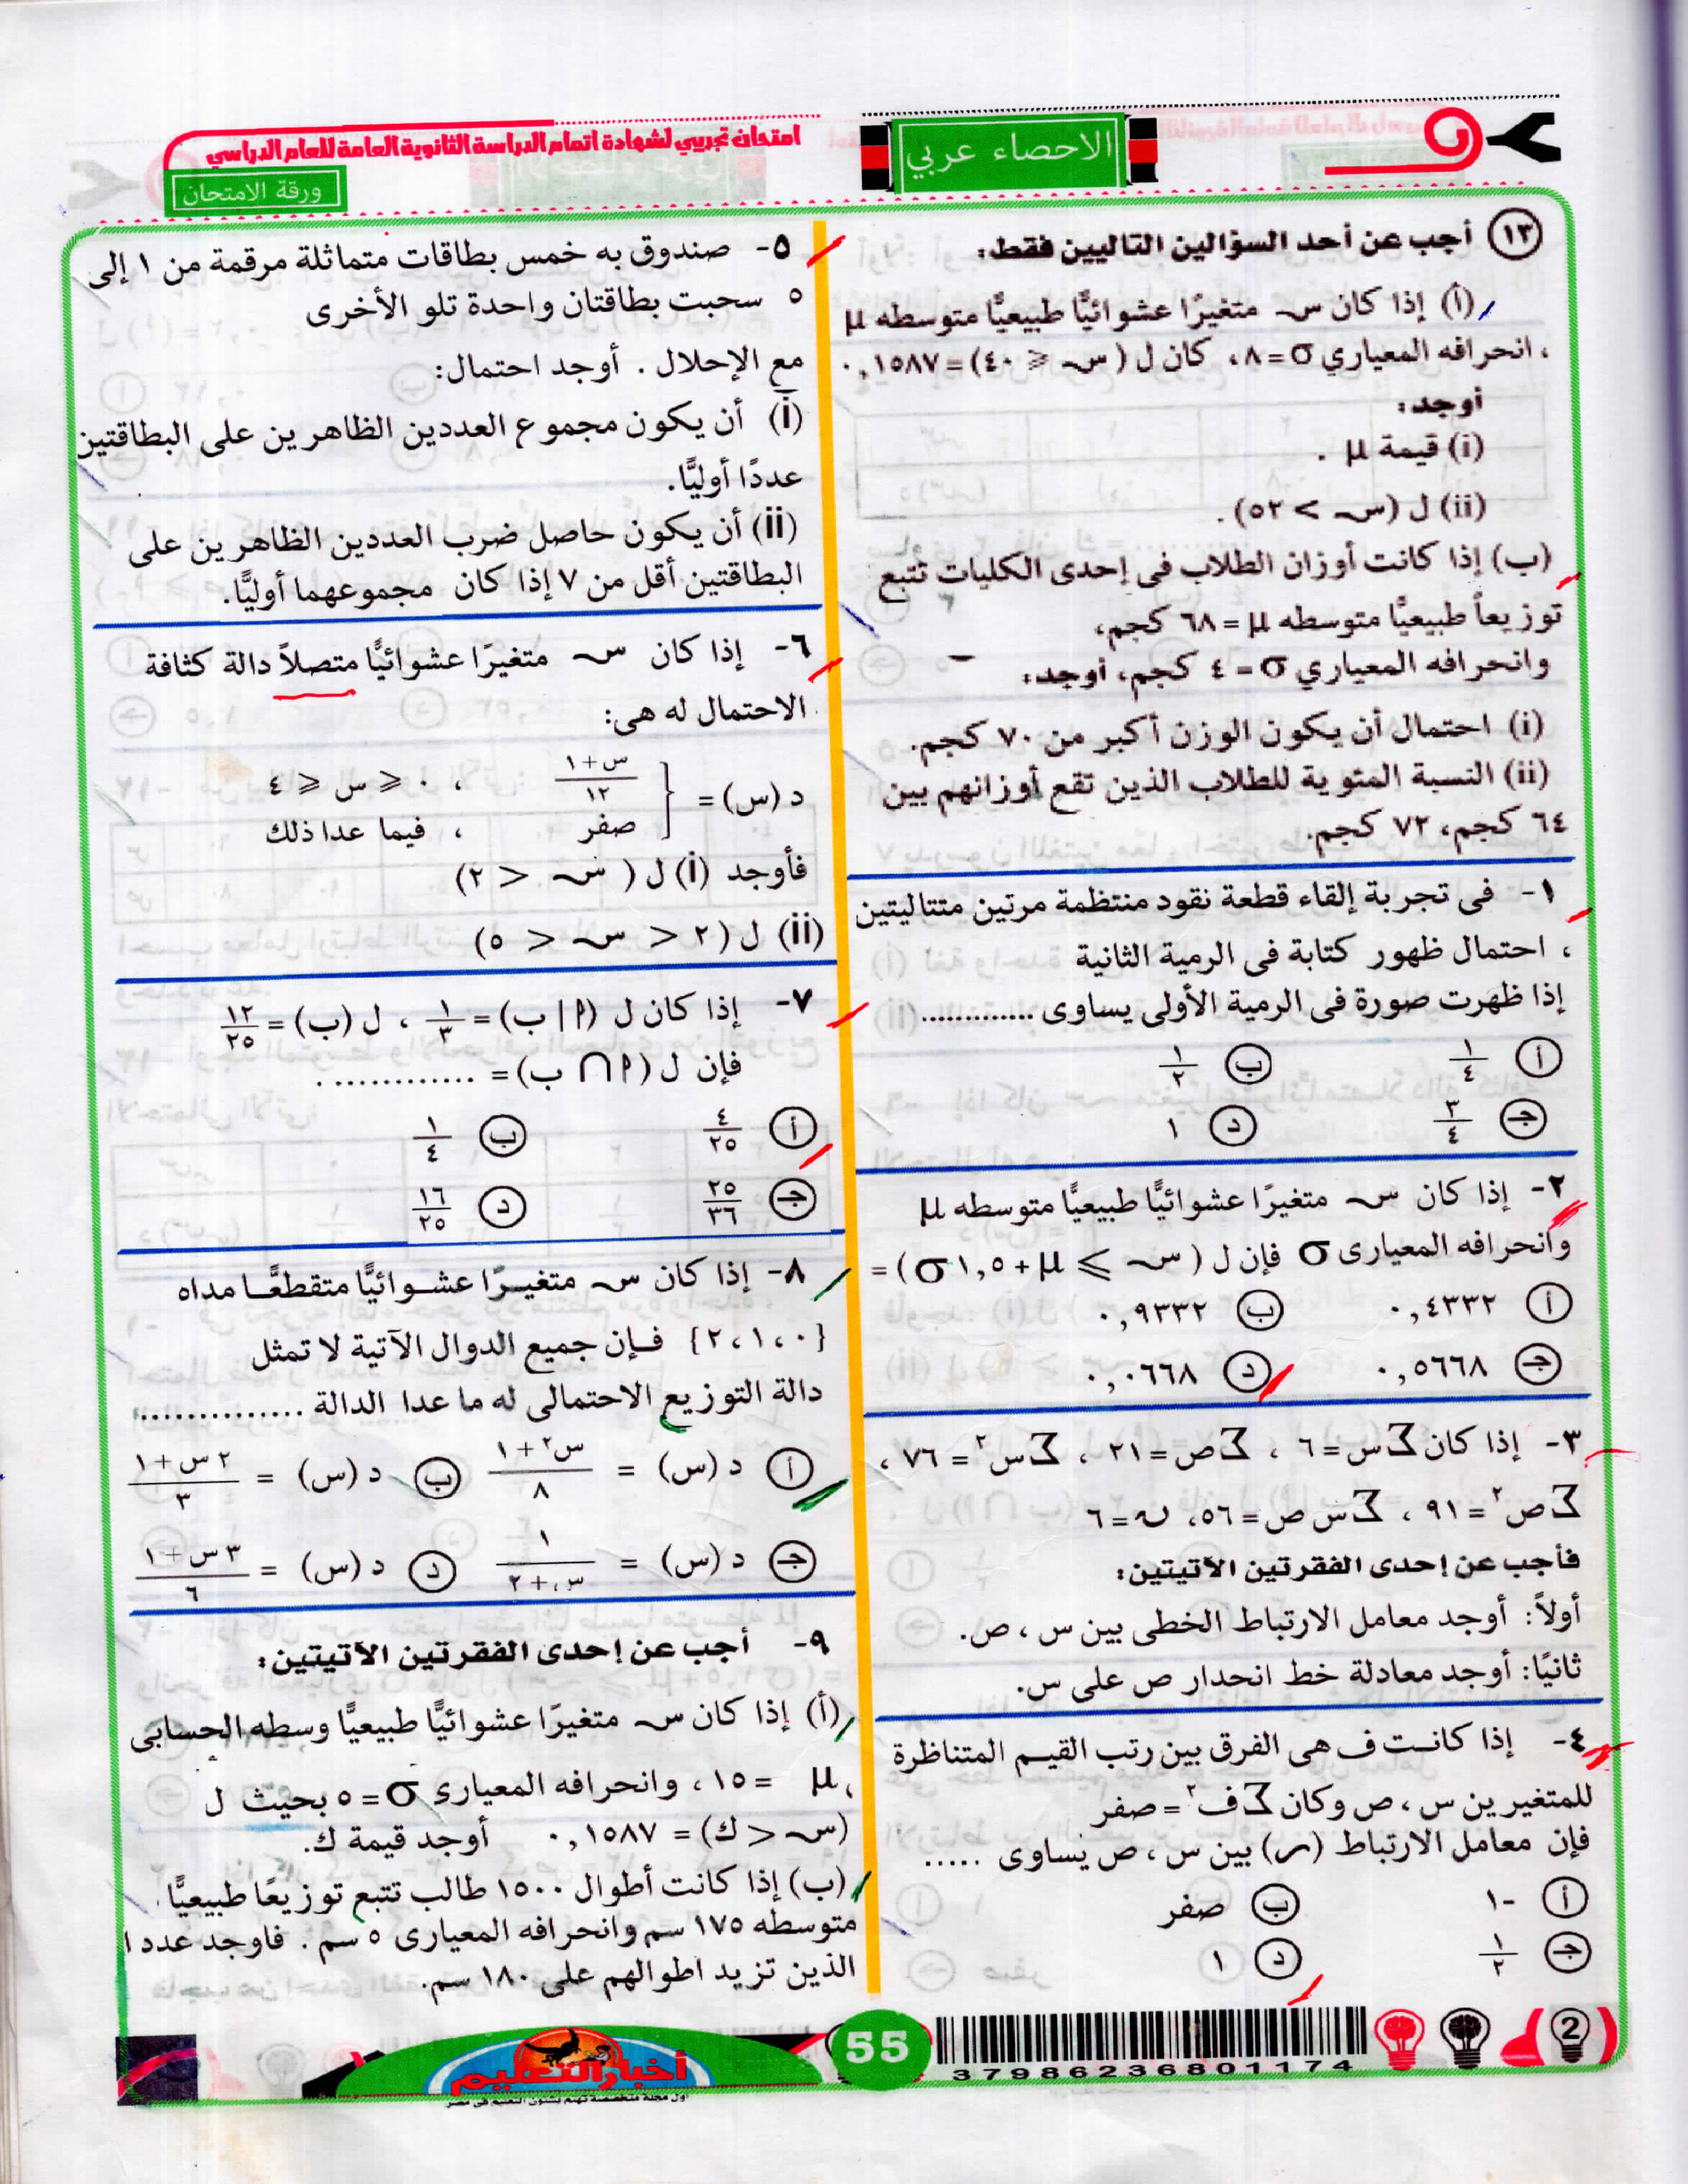 الاحصاء عربي
امتحان تجريبي لشهادة اتمام الدراسة الثانوية العامة للعام الدراسي
ورقة الامتحان
١٣ أجب عن أحد السؤالين التاليين فقط:
(أ) إذا كان س متغيرًا عشوائيًّا طبيعيًّا متوسطه μ
، انحرافه المعياري σ = ٨، كان ل (س ⩾ ٤٠) = ٠,١٥٨٧
أوجد:
(i) قيمة μ .
(ii) ل (س > ٥٢).
(ب) إذا كانت أوزان الطلاب فى إحدى الكليات تتبع
توزيعاً طبيعيًّا متوسطه μ = ٦٨ كجم،
وانحرافه المعياري σ = ٤ كجم، أوجد:
(i) احتمال أن يكون الوزن أكبر من ٧٠ كجم.
(ii) النسبة المئوية للطلاب الذين تقع أوزانهم بين
٦٤ كجم، ٧٢ كجم.
١- فى تجربة إلقاء قطعة نقود منتظمة مرتين متتاليتين
، احتمال ظهور كتابة فى الرمية الثانية
إذا ظهرت صورة فى الرمية الأولى يساوى .............
أ ١/٤ ب ١/٢
جـ ٣/٤ د ١
٢- إذا كان س متغيرًا عشوائيًّا طبيعيًّا متوسطه μ
وانحرافه المعيارى σ فإن ل (س ⩾ μ + ١,٥ σ) =
أ ٠,٤٣٣٢ ب ٠,٩٣٣٢
جـ ٠,٥٦٦٨ د ٠,٠٦٦٨
٣- إذا كان Σس = ٦ ، Σص = ٢١ ، Σس٢ = ٧٦ ،
Σص٢ = ٩١ ، Σس ص = ٥٦، ن = ٦
فأجب عن إحدى الفقرتين الآتيتين:
أولاً: أوجد معامل الارتباط الخطى بين س ، ص.
ثانيًا: أوجد معادلة خط انحدار ص على س.
٤- إذا كانت ف هى الفرق بين رتب القيم المتناظرة
للمتغيرين س ، ص وكان Σف٢ = صفر
فإن معامل الارتباط (ر) بين س ، ص يساوى .....
أ -١ ب صفر
جـ ١/٢ د ١
٥- صندوق به خمس بطاقات متماثلة مرقمة من ١ إلى
٥ سحبت بطاقتان واحدة تلو الأخرى
مع الإحلال . أوجد احتمال:
(i) أن يكون مجموع العددين الظاهرين على البطاقتين
عددًا أوليًّا.
(ii) أن يكون حاصل ضرب العددين الظاهرين على
البطاقتين أقل من ٧ إذا كان مجموعهما أوليًّا.
٦- إذا كان س متغيرًا عشوائيًّا متصلاً دالة كثافة
الاحتمال له هى:
د (س) = { (س+١)/١٢ ، ٠ ⩽ س ⩽ ٤
صفر ، فيما عدا ذلك
فأوجد (i) ل (س < ٢)
(ii) ل (٢ < س < ٥)
٧- إذا كان ل (أ | ب) = ١/٣ ، ل (ب) = ١٢/٢٥
فإن ل (أ ∩ ب) = .............
أ ٤/٢٥ ب ١/٤
جـ ٢٥/٣٦ د ١٦/٢٥
٨- إذا كان س متغيرًا عشوائيًّا متقطعًا مداه
{٠، ١، ٢} فإن جميع الدوال الآتية لا تمثل
دالة التوزيع الاحتمالى له ما عدا الدالة ...............
أ د (س) = (س٢ + ١)/٨ ب د (س) = (٢س + ١)/٣
جـ د (س) = ١/(س + ٢) د د (س) = (٣س + ١)/٦
٩- أجب عن إحدى الفقرتين الآتيتين:
(أ) إذا كان س متغيرًا عشوائيًّا طبيعيًّا وسطه الحسابى
μ = ١٥ ، وانحرافه المعيارى σ = ٥ بحيث ل
(س < ك) = ٠,١٥٨٧ أوجد قيمة ك.
(ب) إذا كانت أطوال ١٥٠٠ طالب تتبع توزيعًا طبيعيًّا
متوسطه ١٧٥ سم وانحرافه المعيارى ٥ سم . فاوجد عدد ا
الذين تزيد اطوالهم على ١٨٠ سم.
أخبار التعليم
اول مجلة متخصصة تهتم بشئون التعليم فى مصر
55
37986236801174
2